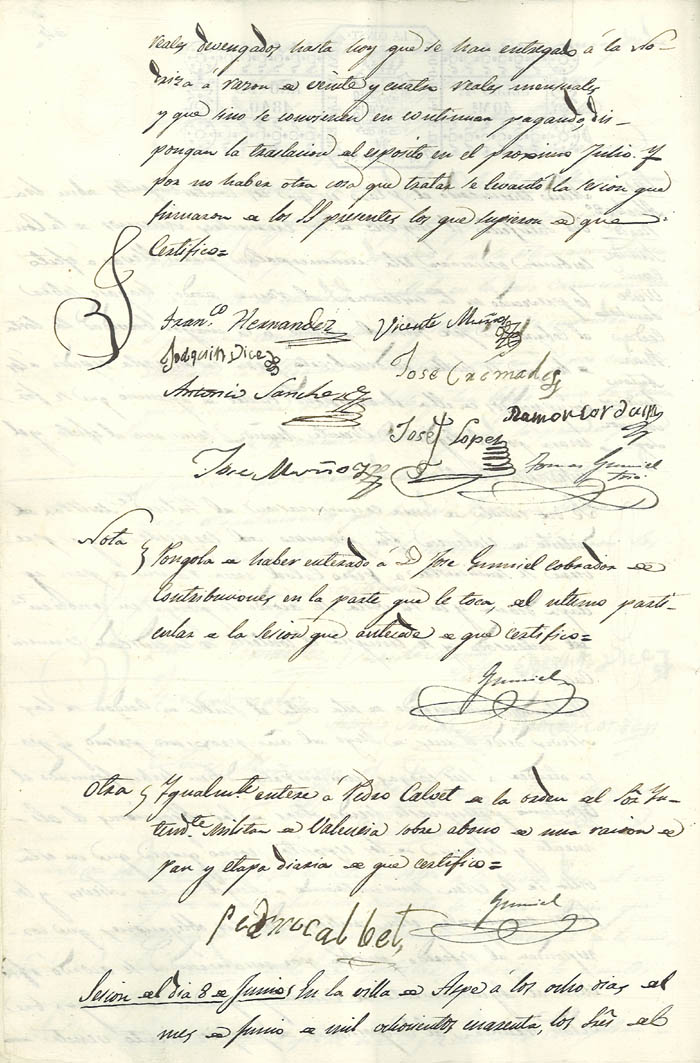 reales devengados hasta hoy que se han entregado á la No-
driza á razon de veinte y cuatro reales mensuales
y que sino se convienen en continuar pagando, dis-
pongan la traslacion del espósito en el proximo Julio. Y
por no haber otra cosa que tratar se levantó la sesion que
firmaron de los SS presentes los que supieron de que
Certifico=
Fran.co Hernandez Vicente Muñoz
Joaquin Dicer José Cremades
Antonio Sanchez
Ramon Corduan
José Lopez
Jose Muñoz Tomas Gumiel
Srio
Nota } Pongola de haber enterado á D. Jose Gumiel cobrador de
Contribuciones en la parte que le toca, del ultimo parti-
cular de la Sesion que antecede de que certifico=
Gumiel
Otra } Igualm.te enteré á Pedro Calvet de la orden del Sor. In-
tend.te Militar de Valencia sobre abono de una racion de
pan y etapa diaria de que certifico=
Pedro Calbet, Gumiel
Sesion del dia 8 de Junio } En la villa de Aspe á los ocho dias del
mes de Junio de mil ochocientos cuarenta, los Sres. del